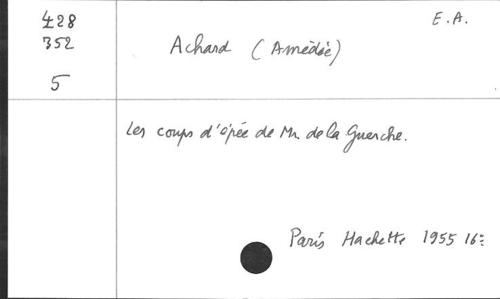 428
352
5
E.A.
Achard (Amédée)
Les coups d'épée de Mr. de la Guerche.
Paris Hachette 1955 16=